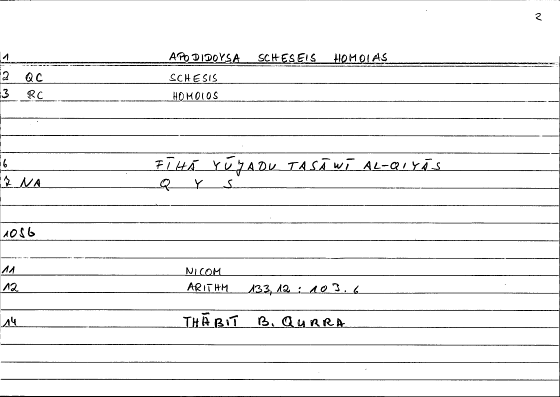 2
1 APODIDOYSA SCHESEIS HOMOIAS
2 QC SCHESIS
3 RC HOMOIOS
6 FĪHĀ YŪǦADU TASĀWĪ AL-QIYĀS
7 NA Q Y S
1056
11 NICOM
12 ARITHM 133,12 : 103.6
14 THĀBIT B. QURRA